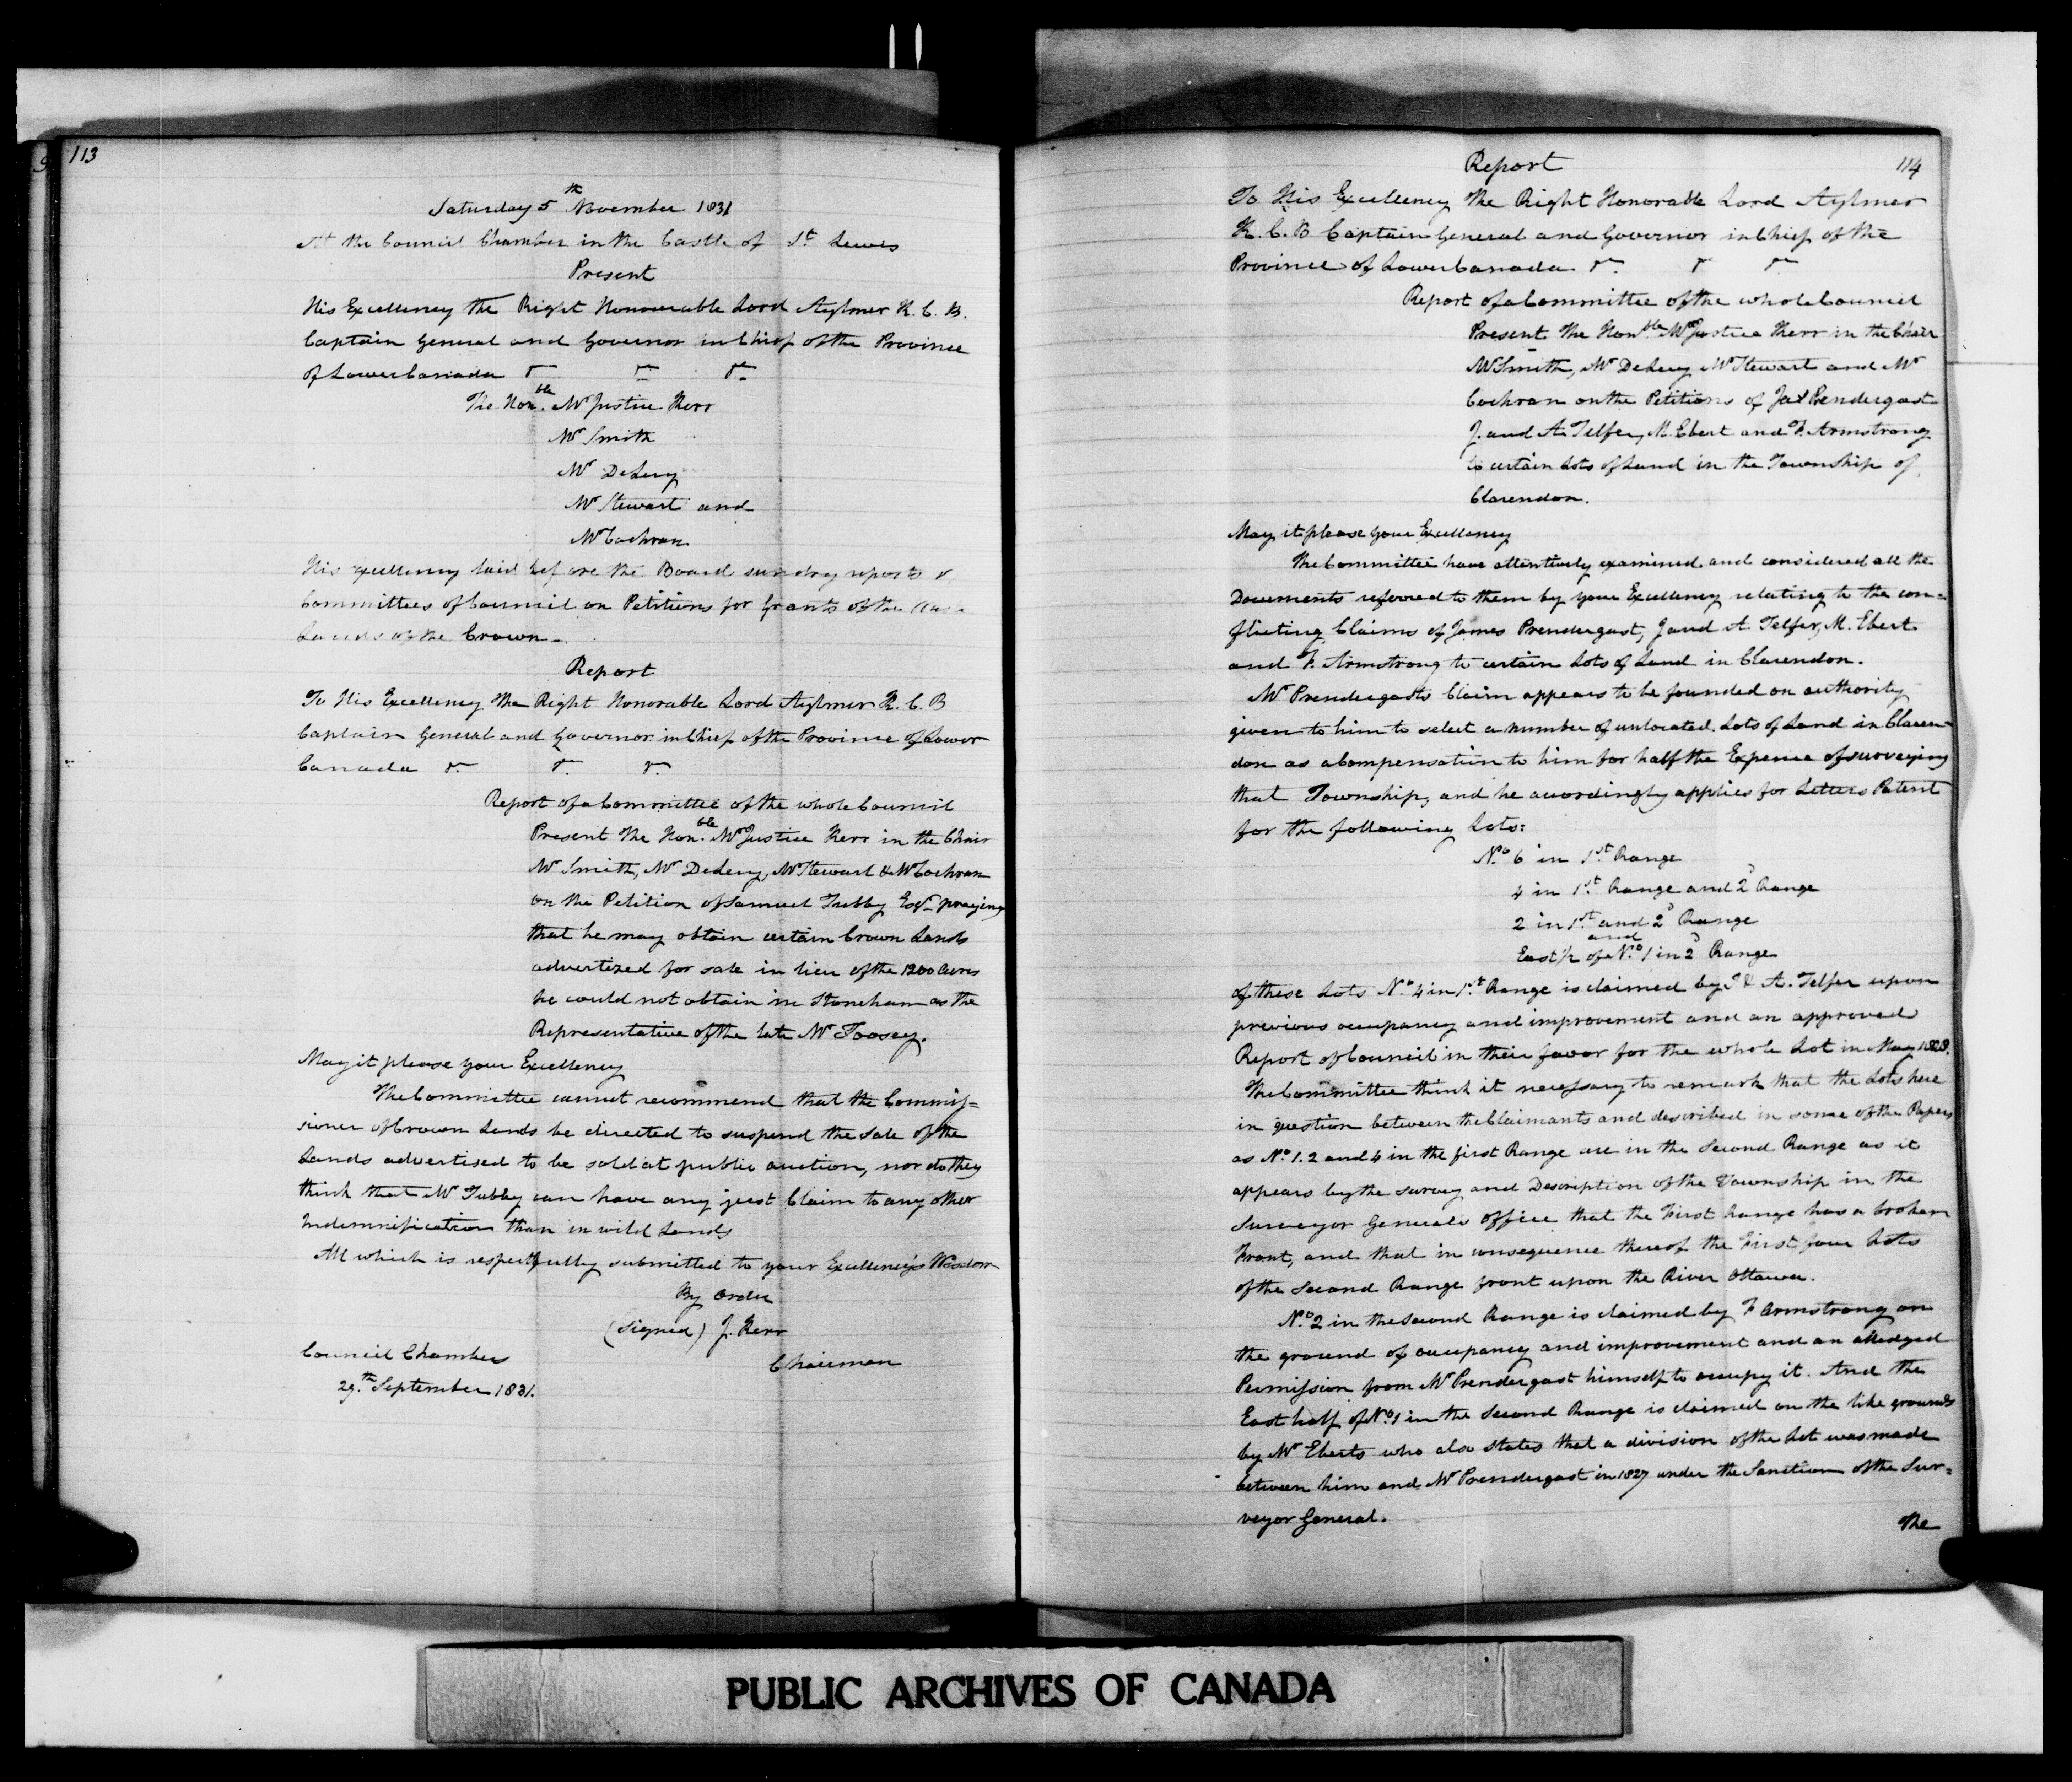 113
Saturday 5th November 1831
At the Council Chamber in the Castle of St. Lewis
Present
His Excellency the Right Honourable Lord Aylmer K. C. B.
Captain General and Governor in Chief of the Province
of Lower Canada &c &c &c
The Honble. Mr Justice Kerr
Mr Smith
Mr DeLery
Mr Stewart and
Mr Cochran
His Excellency laid before the Board sundry reports of
Committees of Council on Petitions for Grants of the
Lands of the Crown
Report
To His Excellency The Right Honorable Lord Aylmer K. C. B
Captain General and Governor in Chief of the Province of Lower
Canada &c &c &c
Report of a Committee of the whole Council
Present The Honble. Mr Justice Kerr in the Chair
Mr Smith, Mr DeLery, Mr Stewart & Mr Cochran
on the Petition of Samuel Tubby Esqr praying
that he may obtain certain Crown Lands
advertized for sale in lieu of the 1200 Acres
he could not obtain in Stoneham as the
Representative of the late Mr Toosey.
May it please your Excellency
The Committee cannot recommend that the Commis=
sioner of Crown Lands be directed to suspend the Sale of the
Lands advertised to be sold at public auction, nor do they
think that Mr Tubby can have any just Claim to any other
Indemnification than in wild Lands
All which is respectfully submitted to your Excellency's Wisdom
By Order
(Signed) J. Kerr
Chairman
Council Chamber
29.th September 1831.
114
Report
To His Excellency The Right Honorable Lord Aylmer
K. C. B Captain General and Governor in Chief of the
Province of Lower Canada &c &c &c
Report of a Committee of the whole Council
Present The Honble. Mr Justice Kerr in the Chair
Mr Smith, Mr DeLery Mr Stewart and Mr
Cochran on the Petitions of Jas Prendergast
J. and A. Telfer, M. Ebert and F. Armstrong
to certain Lots of Land in the Township of
Clarendon.
May it please your Excellency
The Committee have attentively examined and considered all the
Documents referred to them by your Excellency relating to the con=
flicting Claims of James Prendergast, J and A. Telfer, M. Ebert
and F. Armstrong to certain Lots of Land in Clarendon.
Mr Prendergasts Claim appears to be founded on authority
given to him to select a number of unlocated Lots of Land in Claren=
don as a Compensation to him for half the Expence of surveying
that Township, and he accordingly applies for Letters Patent
for the following Lots:
No. 6 in 1st. Range
4 in 1st. Range and 2d Range
2 in 1st. and 2d Range
and
East 1/2 of No. 1 in 2d Range
of these Lots No. 4 in 1st. Range is claimed by J & A. Telfer upon
previous occupancy and improvement and an approved
Report of Council in their favor for the whole Lot in May 1828.
The Committee think it necessary to remark that the Lots here
in question between the Claimants and described in some of the Papers
as No. 1. 2 and 4 in the first Range are in the Second Range as it
appears by the survey and Description of the Township in the
Surveyor Generals Office that the First Range has a broken
Front, and that in consequence thereof the First four Lots
of the Second Range front upon the River Ottawa.
No. 2 in the Second Range is claimed by F Armstrong on
the ground of occupancy and improvement and an alledged
Permission from Mr Prendergast himself to occupy it. And the
East half of No. 1 in the Second Range is claimed on the like grounds
by Mr Eberts who also states that a division of the Lot was made
between him and Mr Prendergast in 1827 under the Sanction of the Sur=
veyor General.
The
PUBLIC ARCHIVES OF CANADA